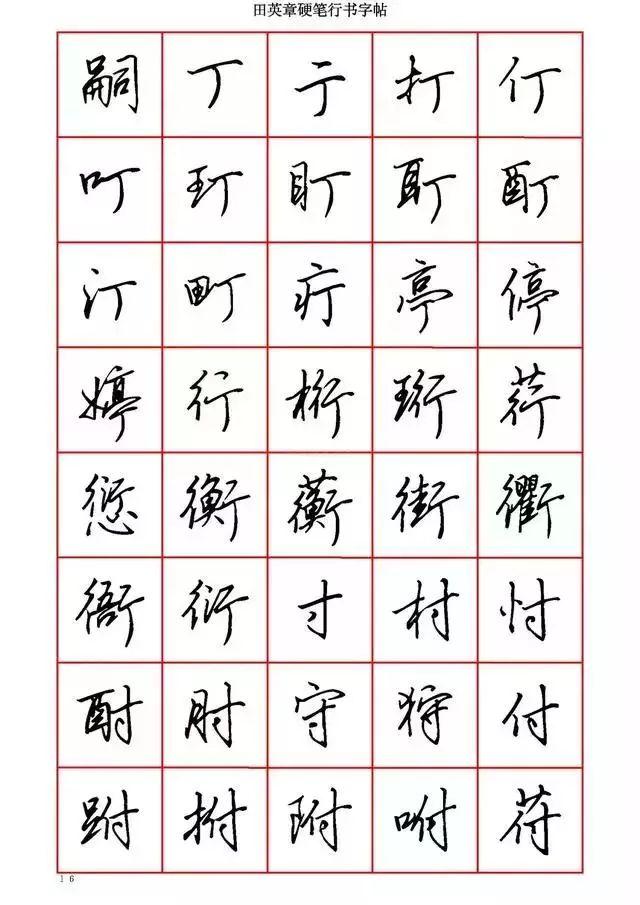 田英章硬笔行书字帖
嗣丁亍打仃
叮玎盯耵酊
汀町疔亭停
婷行桁珩荇
愆衡蘅街衢
衙衍寸村忖
酎肘守狩付
跗拊附咐苻
16